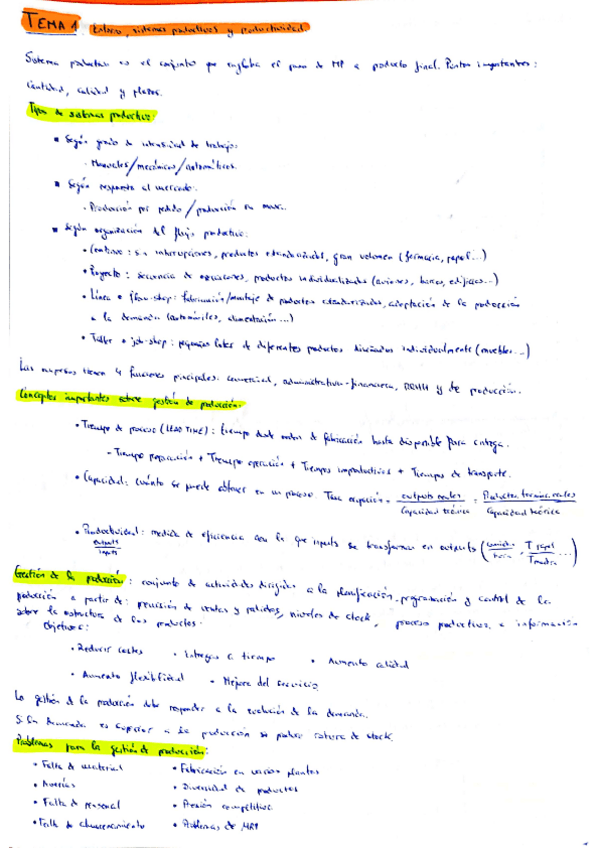 TEMA 1: Entorno, sistemas productivos y productividad.
Sistema productivo es el conjunto que engloba el paso de MP a producto final. Puntos importantes:
Cantidad, calidad y plazos.
Tipos de sistemas productivos:
▪ Según grado de intensidad de trabajo:
· Manuales/mecánicos/automáticos.
▪ Según respuesta al mercado:
· Producción por pedido/producción en masa.
▪ Según organización del flujo productivo:
• Continuo: sin interrupciones, productos estandarizados, gran volumen (farmacia, papel...)
• Proyecto: secuencia de operaciones, productos individualizados (aviones, barcos, edificios...)
• Línea o flow-shop: fabricación/montaje de productos estandarizados, adaptación de la producción
a la demanda (automóviles, alimentación...)
• Taller o job-shop: pequeños lotes de diferentes productos diseñados individualmente (muebles...)
Las empresas tienen 4 funciones principales: comercial, administrativa-financiera, RRHH y de producción.
Conceptos importantes sobre gestión de producción:
• Tiempo de proceso (LEAD TIME): tiempo desde orden de fabricación hasta disponible para entrega.
- Tiempo preparación + Tiempo operación + Tiempos improductivos + Tiempos de transporte.
• Capacidad: cuánto se puede obtener en un proceso. Tasa ocupación = outputs reales / Capacidad teórica = Productos termin. reales / Capacidad teórica
• Productividad: medida de eficiencia con la que inputs se transforman en outputs
outputs / inputs
Gestión de la producción: conjunto de actividades dirigidas a la planificación, programación y control de la
producción a partir de: previsión de ventas y pedidos, niveles de stock, proceso productivo, e información
sobre la estructura de los productos.
Objetivos:
• Reducir costes • Entregas a tiempo • Aumento calidad
• Aumento flexibilidad • Mejora del servicio
La gestión de la producción debe responder a la evolución de la demanda.
Si la demanda es superior a la producción se produce rotura de stock.
Problemas para la gestión de producción:
• Falta de material • Fabricación en varias plantas
• Averías • Diversidad de productos
• Falta de personal • Presión competitiva
• Falta de almacenamiento • Problemas de MRP